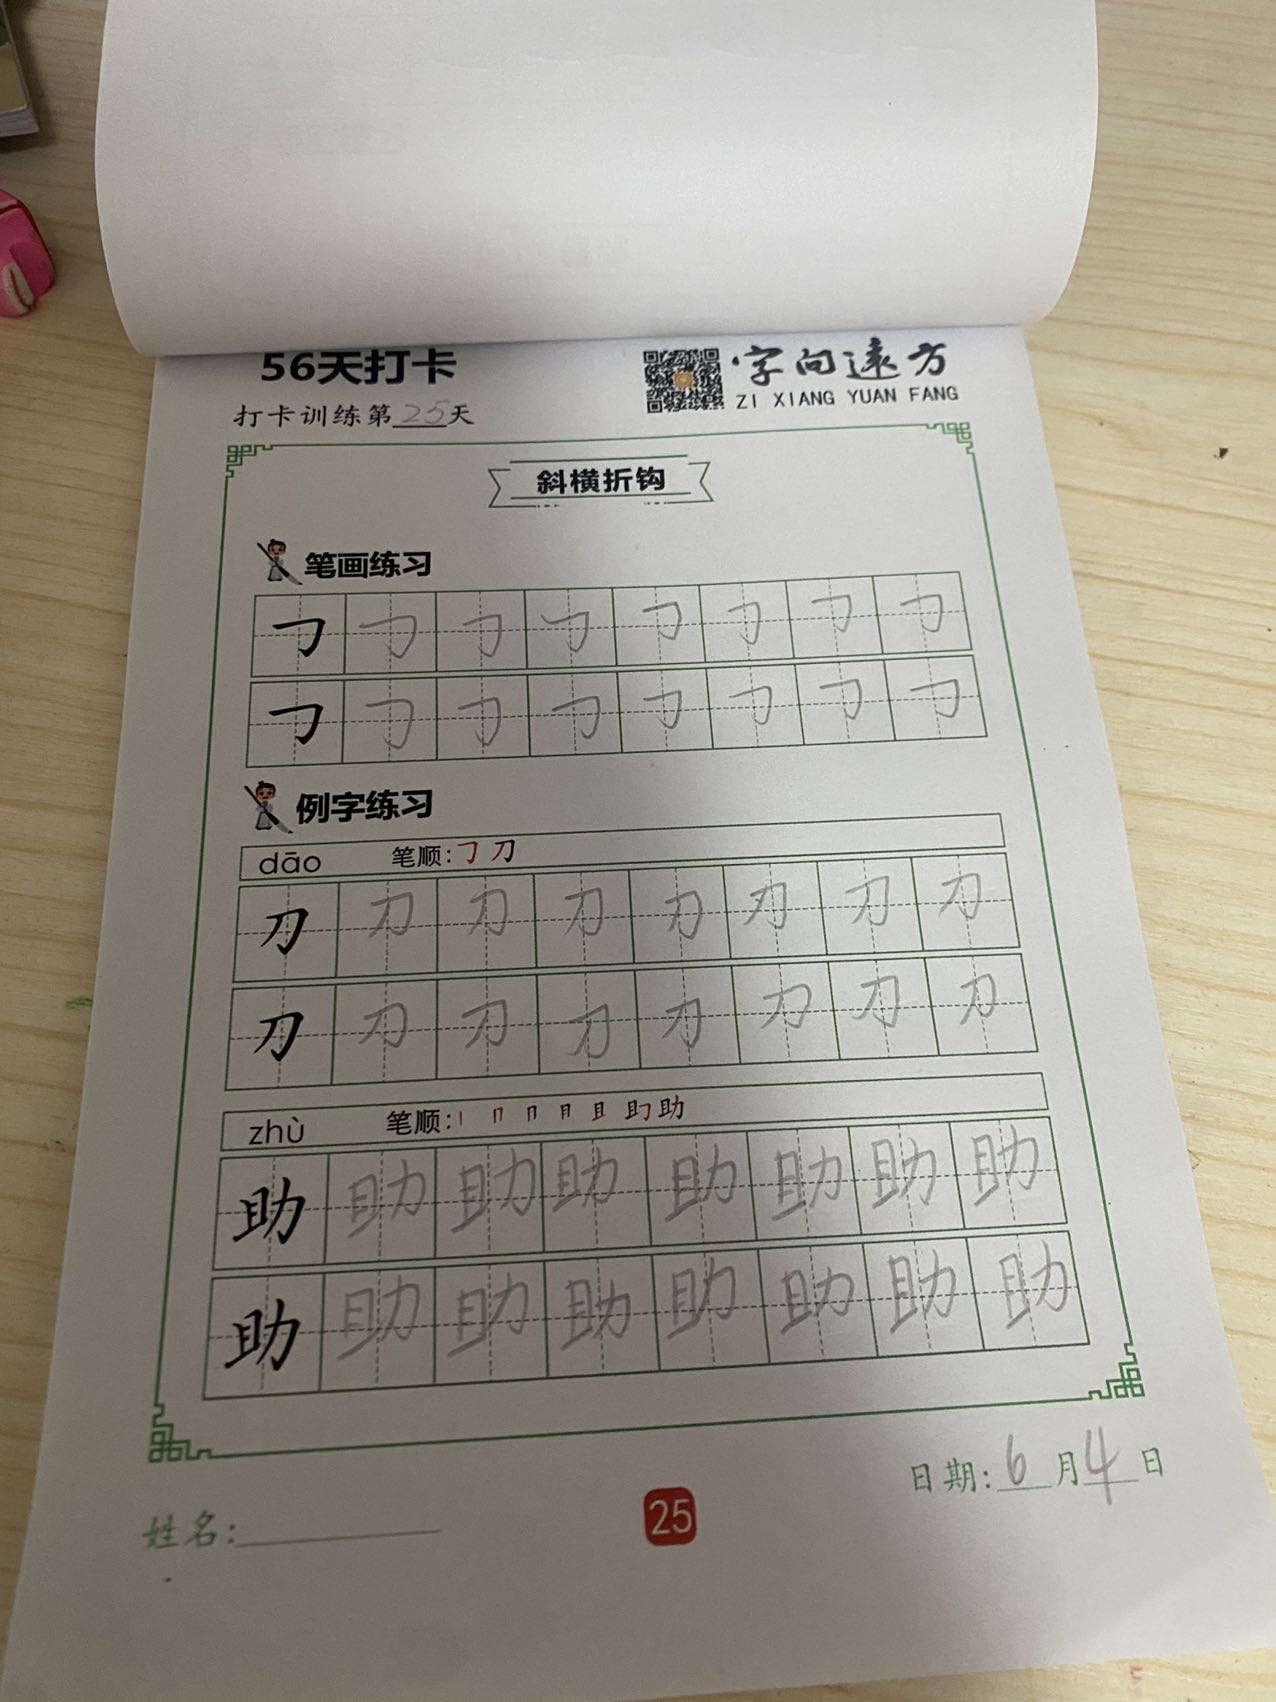 56天打卡
字向远方
ZI XIANG YUAN FANG
打卡训练第25天
斜横折钩
笔画练习
㇆ ㇆ ㇆ ㇆ ㇆ ㇆ ㇆ ㇆
㇆ ㇆ ㇆ ㇆ ㇆ ㇆ ㇆ ㇆
例字练习
dāo 笔顺:㇆刀
刀 刀 刀 刀 刀 刀 刀 刀
刀 刀 刀 刀 刀 刀 刀 刀
zhù 笔顺:丨 冂 月 且 助
助 助 助 助 助 助 助 助
助 助 助 助 助 助 助 助
日期:6月4日
姓名:
25